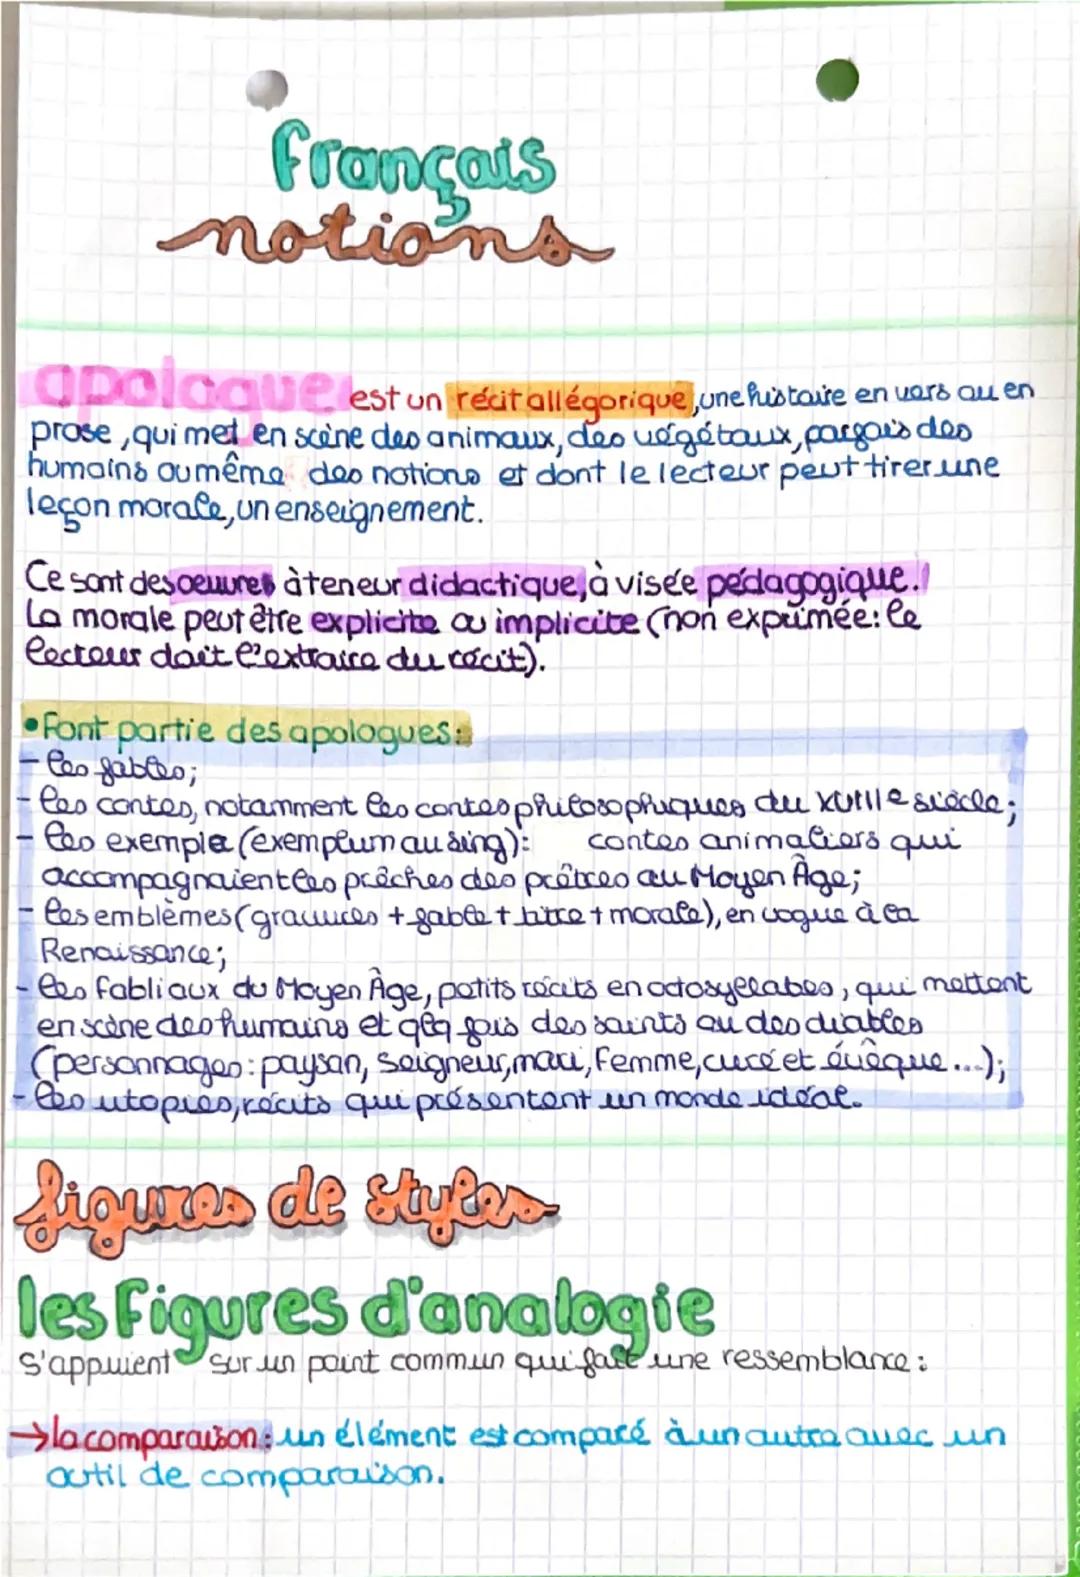 français
notions
apologue est un récit allégorique, une histoire en vers ou en
prose, qui met en scène des animaux, des végétaux, parfois des
humains ou même des notions et dont le lecteur peut tirer une
leçon morale, un enseignement.
Ce sont des oeuvres à teneur didactique, à visée pédagogique.
La morale peut être explicite ou implicite (non exprimée: le
lecteur doit l'extraire du récit).
•Font partie des apologues:
- les fables;
- les contes, notamment les contes philosophiques du XVIIIe siècle;
- les exempla (exemplum au sing): contes animaliers qui
accompagnaient les prêches des prêtres au Moyen Âge;
- les emblèmes (gravures + fable + titre + morale), en vogue à la
Renaissance;
- les fabliaux du Moyen Âge, petits récits en octosyllabes, qui mettent
en scène des humains et qlq fois des saints ou des diables
(personnages: paysan, seigneur, mari, femme, curé et évêque...);
- les utopies, récits qui présentent un monde idéal.
figures de styles
les figures d'analogie
s'appuient sur un point commun qui fait une ressemblance:
→ la comparaison: un élément est comparé à un autre avec un
outil de comparaison.